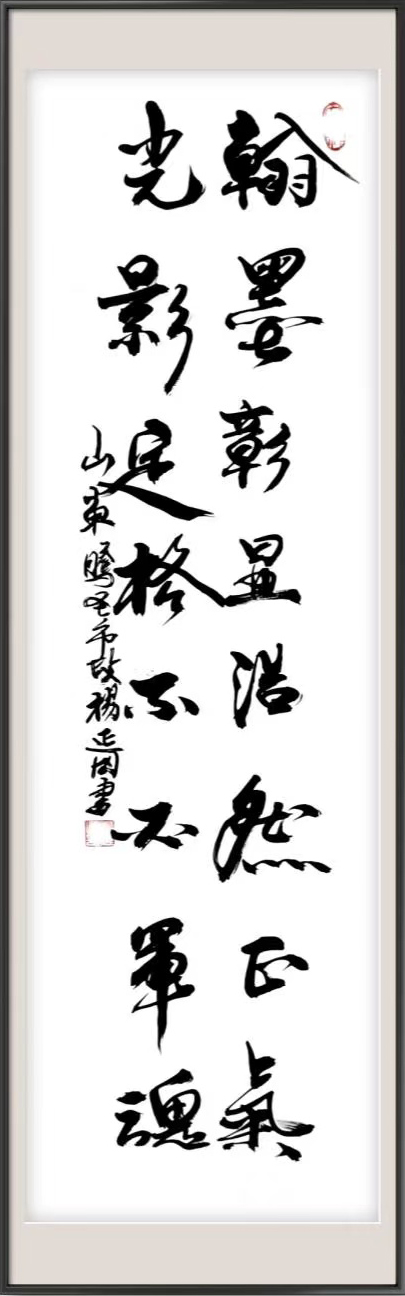 翰墨彰显浩然正氣
光影定格不軍魂
山東市楊國書